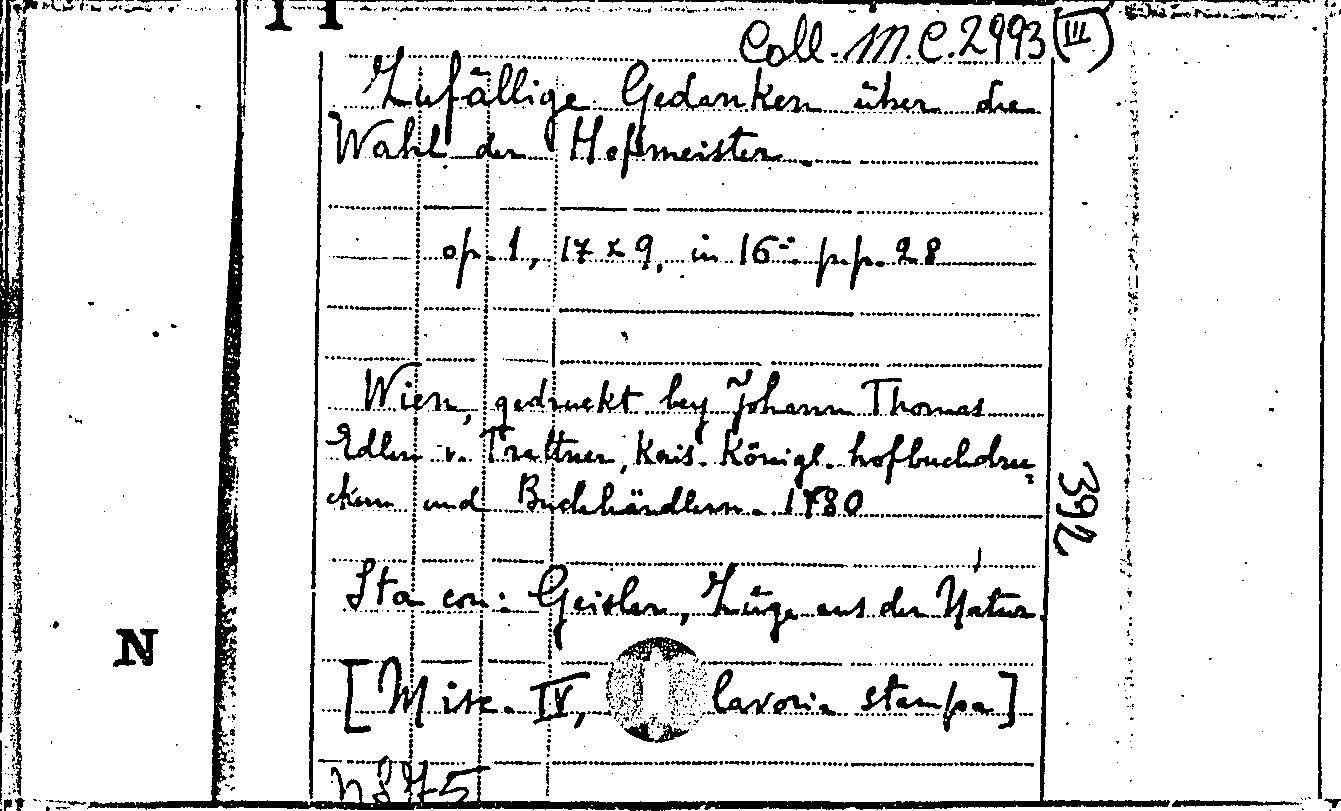 Coll. M.C. 2993 (III)
Zufällige Gedanken über die
Wahl der Hofmeister.
op. 1, 17 x 9, in 16º. pp. 28
Wien, gedruckt bey Johann Thomas
Edlen v. Trattner, Kais. Königl. hofbuchdru=
ckern und Buchhändlern. 1780
392
Sta con: Geisler, Züge aus der Natur.
N
[Misc. IV, lavori a stampa]